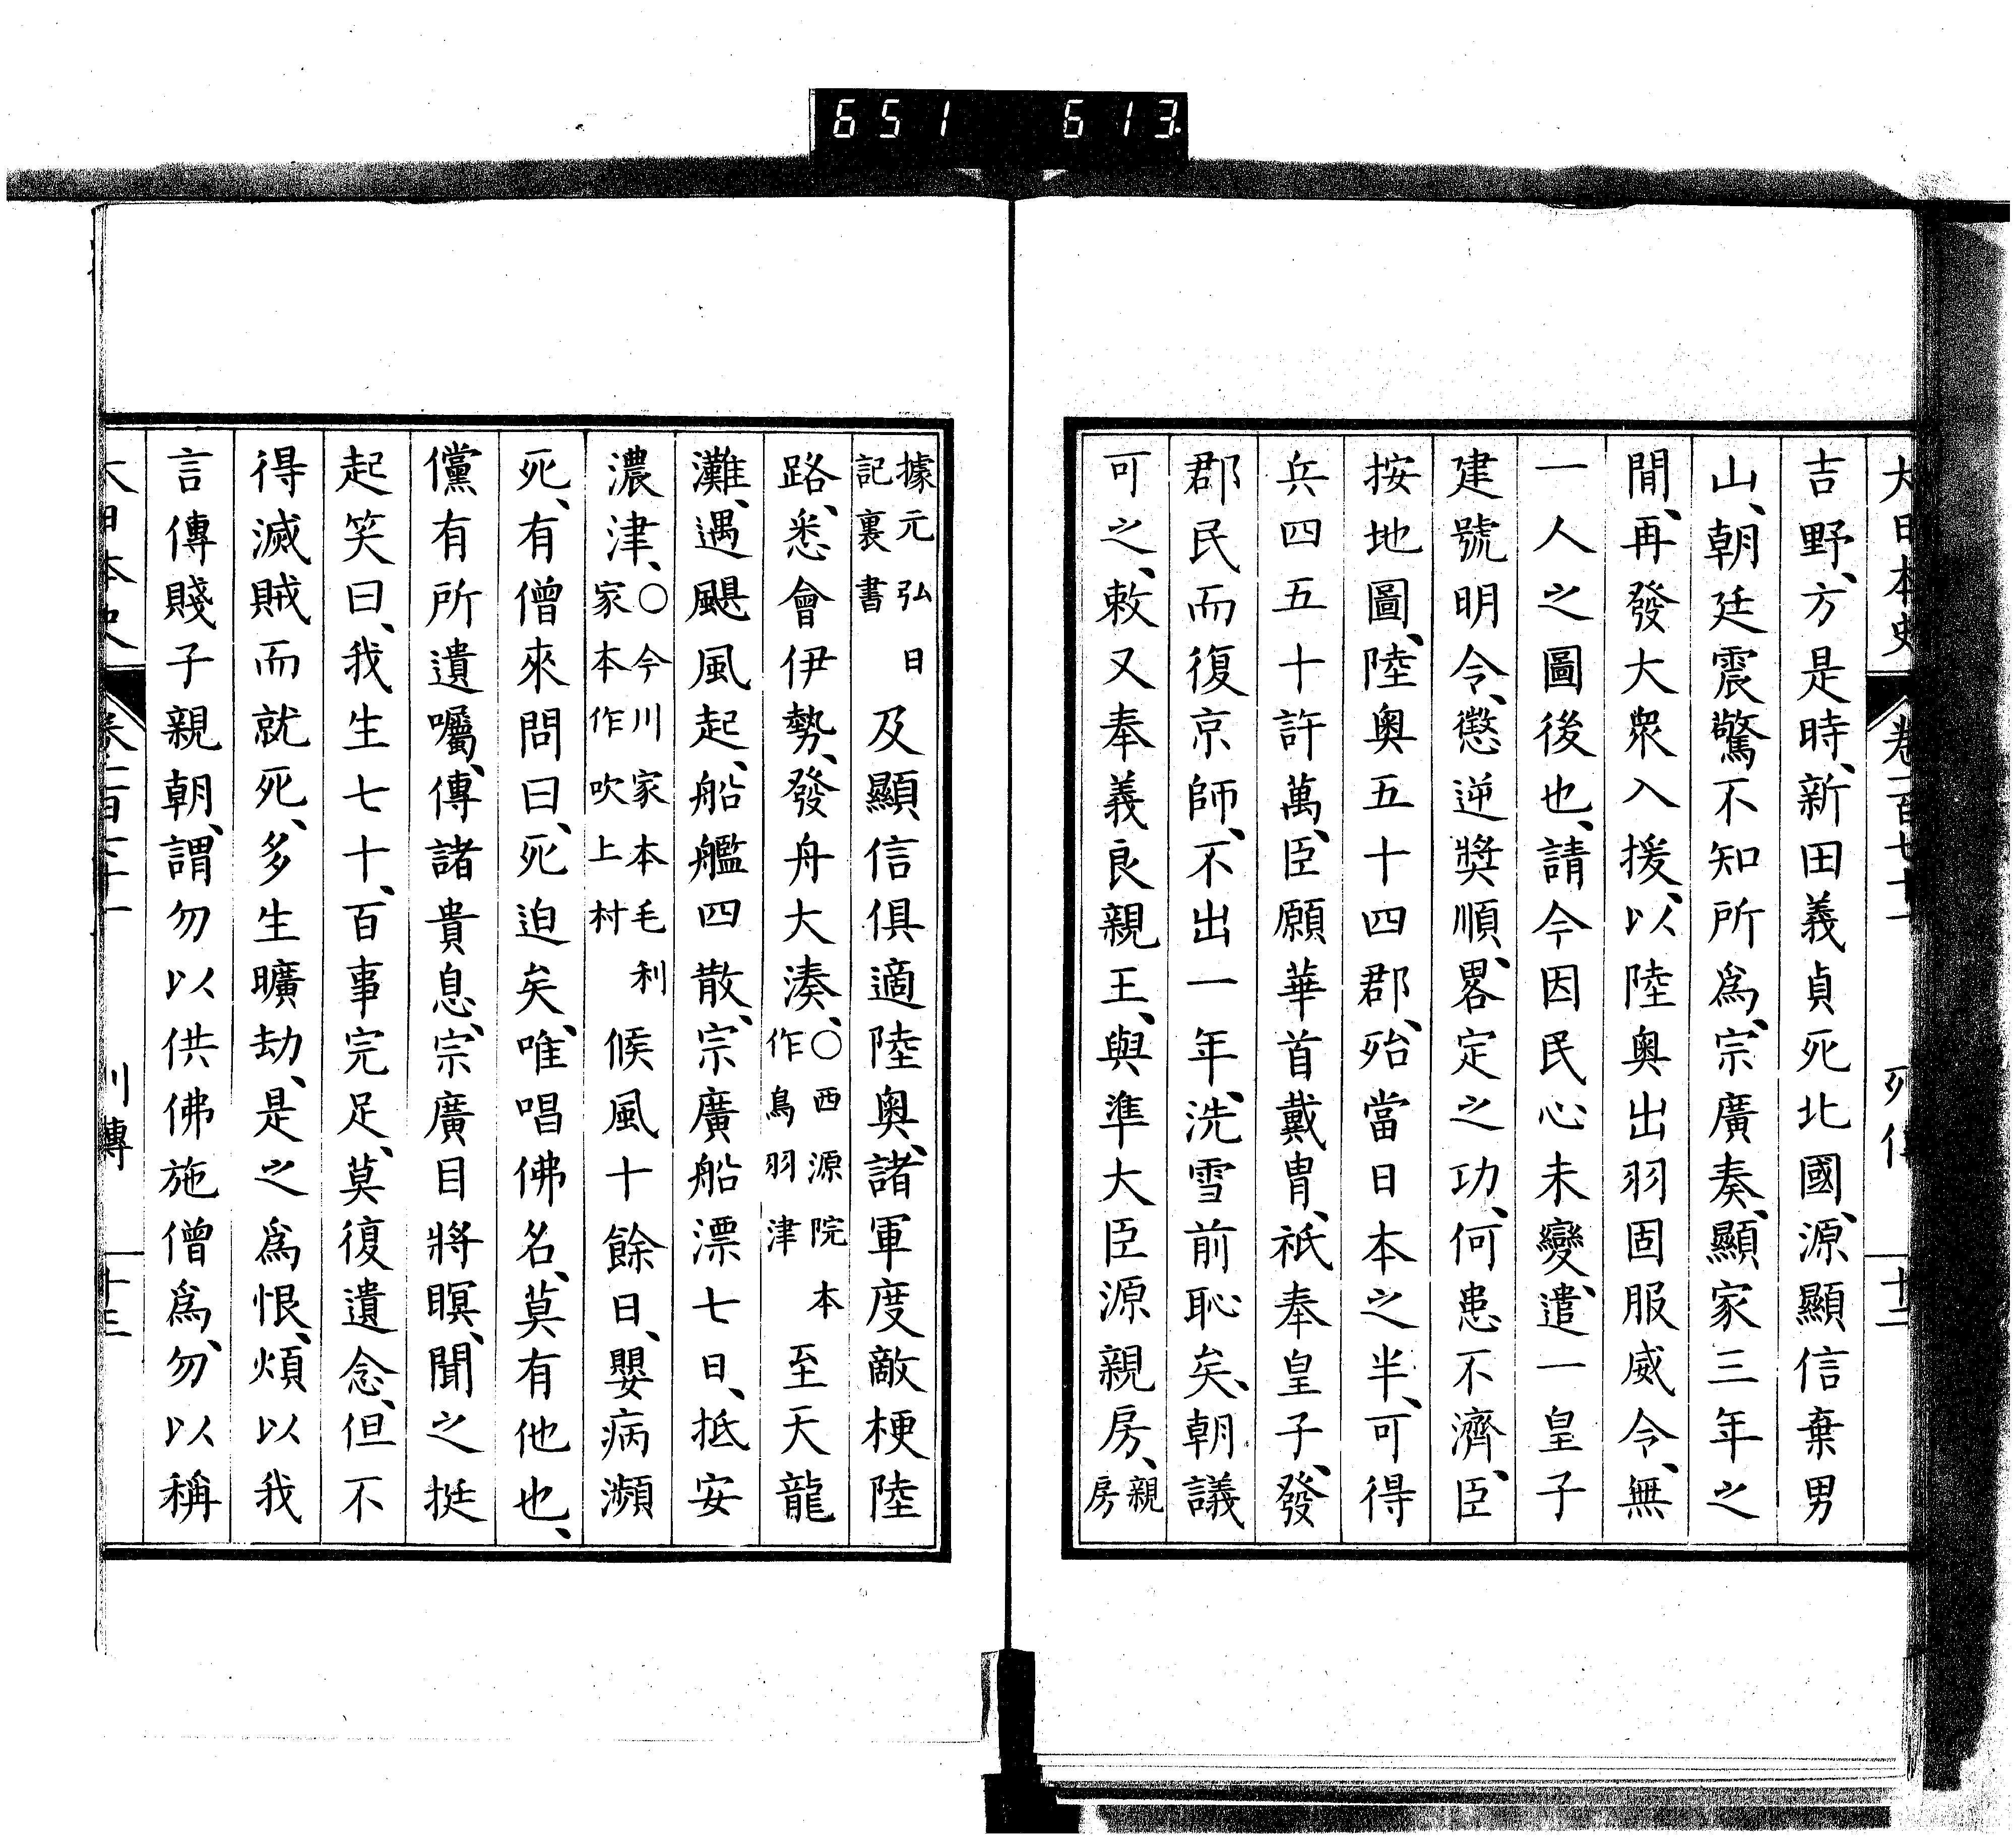 651 613
大日本史 卷一百七十一 列傳 十二
吉野、方是時、新田義貞死北國、源顯信棄男
山、朝廷震驚不知所爲、宗廣奏、顯家三年之
間、再發大衆入援、以陸奧出羽固服威令、無
一人之圖後也、請今因民心未變、遣一皇子
建號明令、懲逆奬順、畧定之功、何患不濟、臣
按地圖、陸奧五十四郡、殆當日本之半、可得
兵四五十許萬、臣願華首戴冑、祇奉皇子、發
郡民而復京師、不出一年、洗雪前恥矣、朝議
可之、敕又奉義良親王、與準大臣源親房、親
房
據元弘日
記裏書
及顯信俱適陸奧、諸軍度敵梗陸
路、悉會伊勢、發舟大湊、○西源院本
作鳥羽津
至天龍
灘、遇颶風起、船艦四散、宗廣船漂七日、抵安
濃津、○今川家本毛利
家本作吹上村
候風十餘日、嬰病瀕
死、有僧來問曰、死迫矣、唯唱佛名、莫有他也、
儻有所遺囑、傳諸貴息、宗廣目將瞑、聞之挺
起笑曰、我生七十、百事完足、莫復遺念、但不
得滅賊而就死、多生曠劫、是之爲恨、煩以我
言傳賤子親朝、謂勿以供佛施僧爲、勿以稱
大日本史 卷一百七十一 列傳 十三